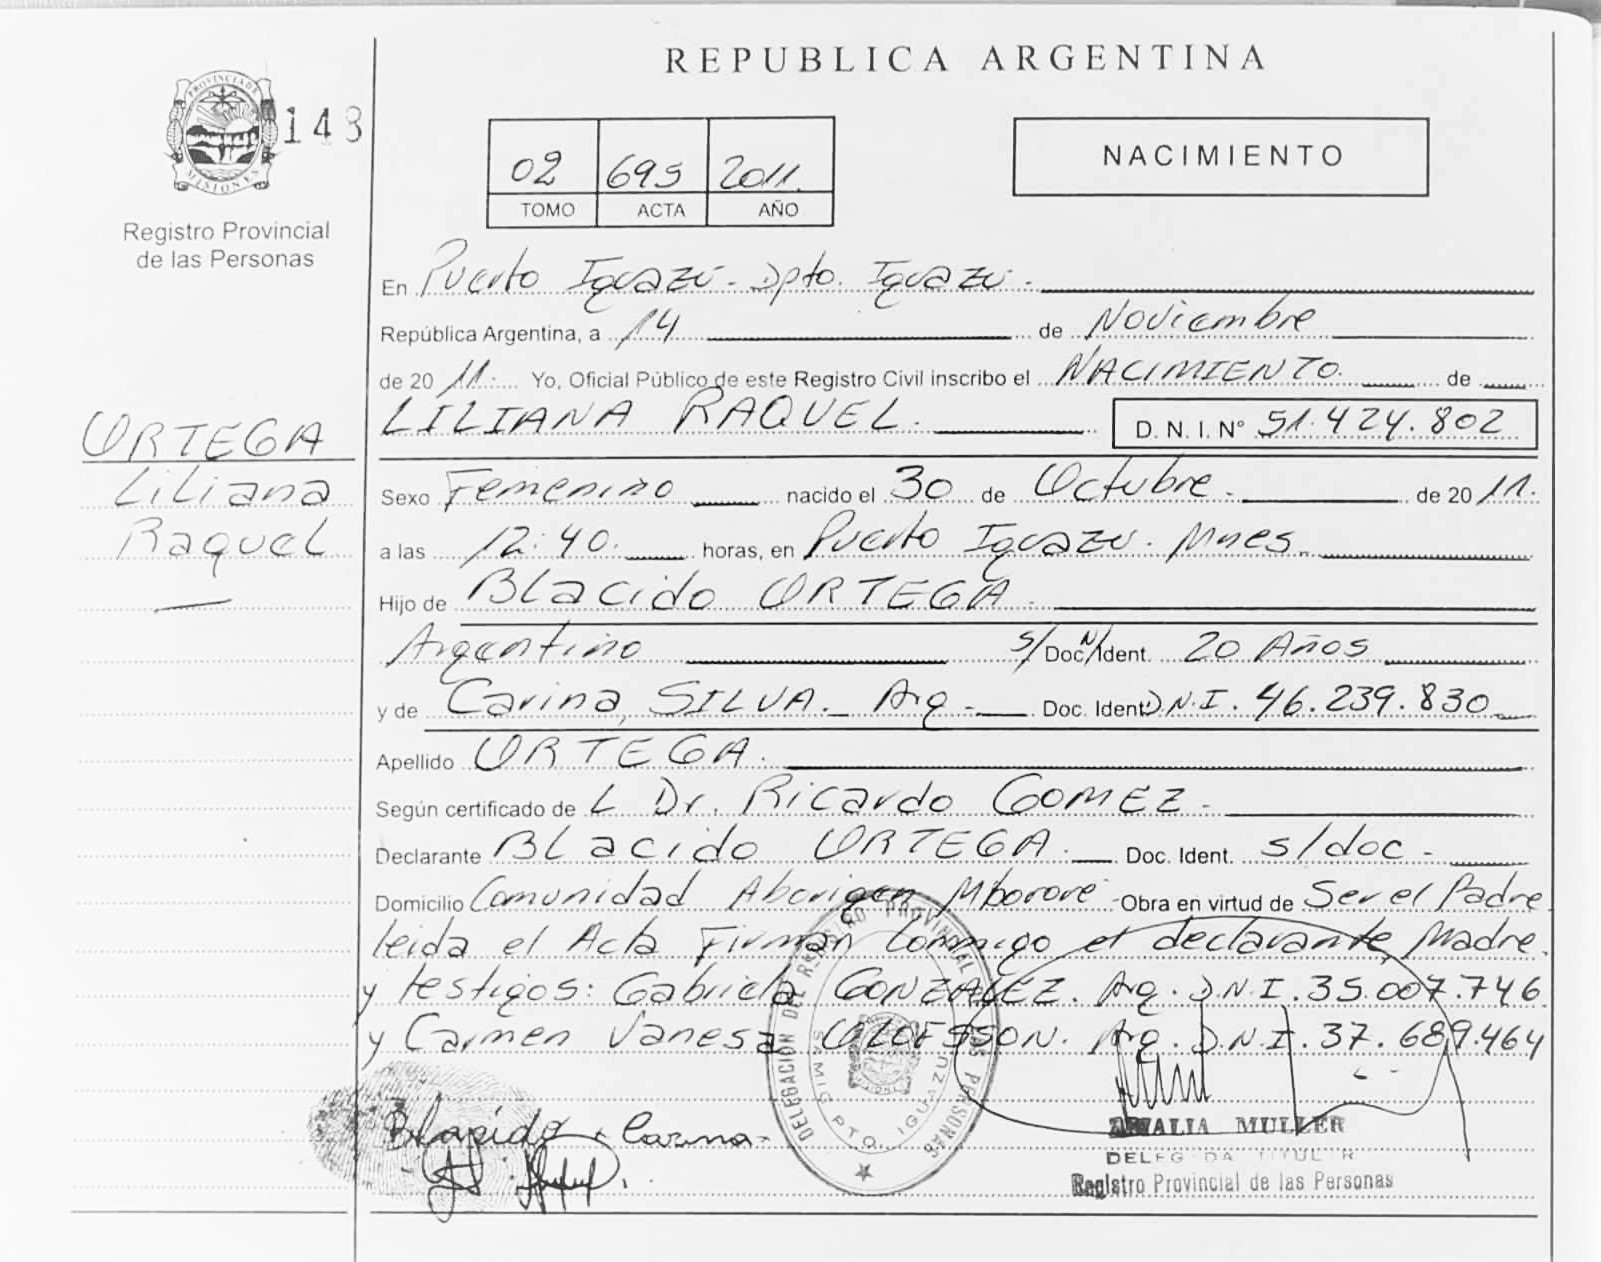 REPUBLICA ARGENTINA
PROVINCIA DE MISIONES
148
02 695 2011.
TOMO ACTA AÑO
NACIMIENTO
Registro Provincial
de las Personas
En Puerto Iguazú - Dpto. Iguazú -
República Argentina, a 14 de Noviembre
de 20 11. Yo, Oficial Público de este Registro Civil inscribo el NACIMIENTO. de
LILIANA RAQUEL. D.N.I. N° 51.424.802
ORTEGA
Liliana
Raquel
Sexo Femenino nacido el 30 de Octubre - de 20 11.
a las 12:40. horas, en Puerto Iguazú. Mnes.
Hijo de BLacido ORTEGA.
Argentino s/ Doc. N/Ident. 20 Años
y de Carina SILVA. Arg - Doc. Ident. D.N.I. 46.239.830
Apellido ORTEGA.
Según certificado de L Dr. Ricardo GOMEZ.
Declarante BLacido ORTEGA. Doc. Ident. s/doc -
Domicilio Comunidad Aborigen Mbororé - Obra en virtud de Ser el Padre
leida el Acta Firman Conmigo el declarante, Madre.
y testigos: Gabriela GONZALEZ. Arg. D.N.I. 35.007.746
y Carmen Vanesa OLOFSSON. Arg. D.N.I. 37.689.464
DELEGACIÓN DEL REGISTRO PROVINCIAL DE LAS PERSONAS
SAMIC PTO. IGUAZU
Blasido Carina
AMALIA MULLER
DELEGADA TITULAR
Registro Provincial de las Personas